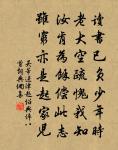 讀書已負少年時
老大空疏愧我知
汝肯為餘償此志
雖窮亦是起家兒